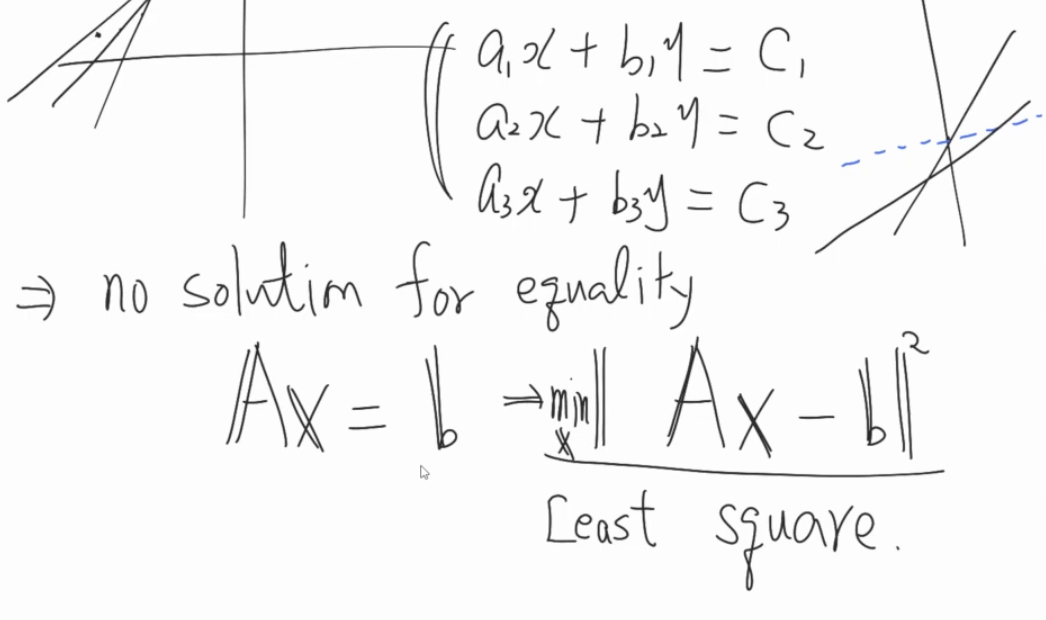 a₁x + b₁y = C₁
a₂x + b₂y = C₂
a₃x + b₃y = C₃
⇒ no solution for equality
Ax = b ⇒ min‖ Ax - b‖²
x
Least square.